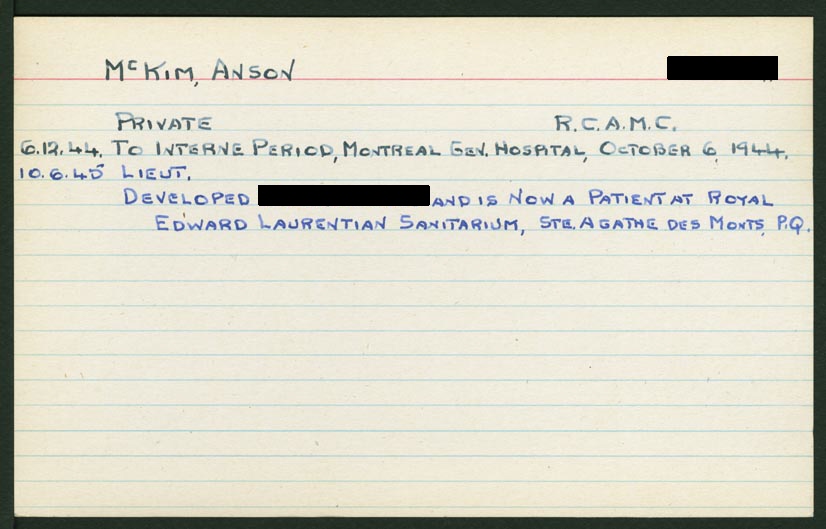 McKIM, ANSON
PRIVATE R.C.A.M.C.
6.12.44. TO INTERNE PERIOD, MONTREAL GEN. HOSPITAL, OCTOBER 6, 1944.
10.6.45 LIEUT.
DEVELOPED AND IS NOW A PATIENT AT ROYAL
EDWARD LAURENTIAN SANITARIUM, STE. AGATHE DES MONTS, P.Q.